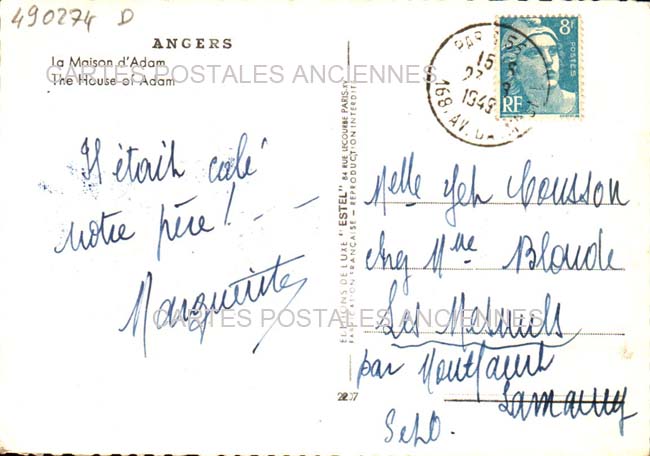 490274 D
ANGERS
La Maison d'Adam
The House of Adam
CARTES POSTALES ANCIENNES
Il était calé
notre père !
Marguerite
CARTES POSTALES ANCIENNES
EDITIONS DE LUXE "ESTEL" 84 RUE LECOURBE PARIS-XV
FABRICATION FRANÇAISE - REPRODUCTION INTERDITE
2207
8F
POSTES
RF
PARIS
15
1949
168, AV.
Melle Cousson
chez Mme Blonde
Les Mesnuls
par Montfort
Lamaury
S et O.